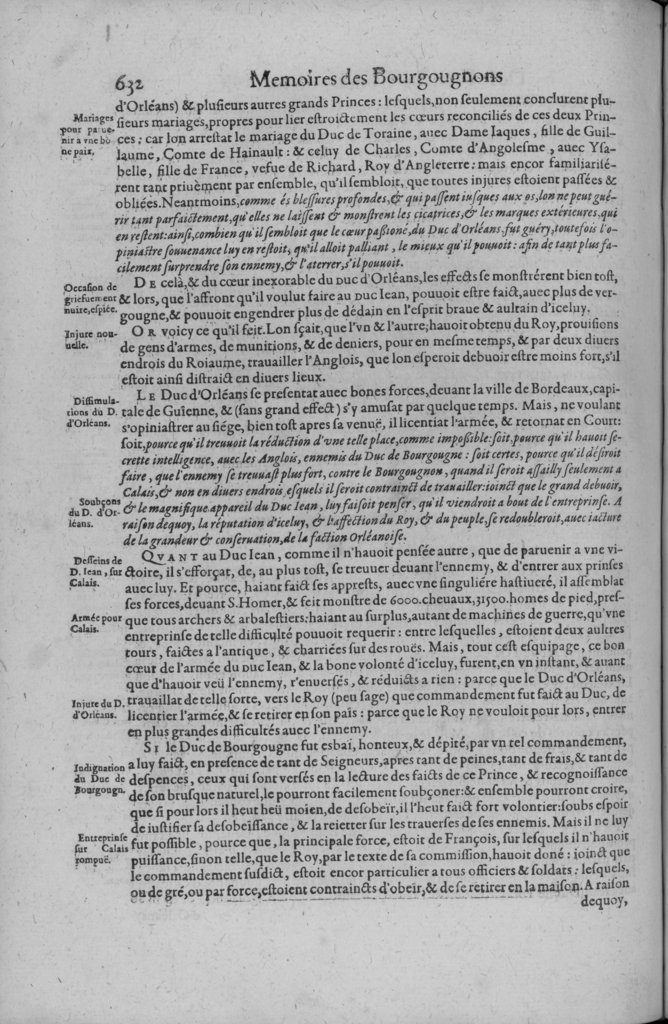 632 Memoires des Bourgougnons
d'Orléans) & plusieurs autres grands Princes : lesquels, non seulement conclurent plu-
Mariages
pour parue-
nir a vne bo-
ne paix.
sieurs mariages, propres pour lier estroictement les cœurs reconciliés de ces deux Prin-
ces ; car lon arrestat le mariage du Duc de Toraine, auec Dame Iaques, fille de Guil-
laume, Comte de Hainault : & celuy de Charles, Comte d'Angolesme, auec Ysa-
belle, fille de France, vefue de Richard, Roy d'Angleterre : mais encor familiarisé-
rent tant priuément par ensemble, qu'il sembloit, que toutes injures estoient passées &
obliées. Neantmoins, comme és blessures profondes, & qui passent iusques aux os, lon ne peut gué-
rir tant parfaictement, qu'elles ne laissent & monstrent les cicatrices, & les marques extérieures, qui
en restent: ainsi, combien qu'il sembloit que le cœur passioné, du Duc d'Orléans, fut guéry, toutefois l'o-
piniastre souuenance luy en restoit, qu'il alloit palliant, le mieux qu'il pouuoit : afin de tant plus fa-
cilement surprendre son ennemy, & l'aterrer, s'il pouuoit.
Occasion de
griefuement
nuire, espiée.
DE celà, & du cœur inexorable du Duc d'Orléans, les effects se monstrérent bien tost,
& lors, que l'affront qu'il voulut faire au Duc Iean, pouuoit estre faict, auec plus de ver-
gougne, & pouuoit engendrer plus de dédain en l'esprit braue & aultrain d'iceluy.
Injure nou-
uelle.
OR voicy ce qu'il feit. Lon sçait, que l'vn & l'autre, hauoit obtenu du Roy, prouisions
de gens d'armes, de munitions, & de deniers, pour en mesme temps, & par deux diuers
endrois du Roiaume, trauailler l'Anglois, que lon esperoit debuoir estre moins fort, s'il
estoit ainsi distraict en diuers lieux.
Dissimula-
tions du D.
d'Orléans.
LE Duc d'Orléans se presentat auec bones forces, deuant la ville de Bordeaux, capi-
tale de Guïenne, & (sans grand effect) s'y amusat par quelque temps. Mais, ne voulant
s'opiniastrer au siége, bien tost apres sa venuë, il licentiat l'armée, & retornat en Court:
soit, pource qu'il treuuoit la réduction d'vne telle place, comme impossible: soit, pource qu'il hauoit se-
crette intelligence, auec les Anglois, ennemis du Duc de Bourgougne : soit certes, pource qu'il désiroit
faire, que l'ennemy se treuuast plus fort, contre le Bourgougnon, quand il seroit assailly seulement a
Calais, & non en diuers endrois, esquels il seroit contrainct de trauailler: ioinct que le grand debuoir,
Soubçons
du D. d'Or-
léans.
& le magnifique appareil du Duc Iean, luy faisoit penser, qu'il viendroit a bout de l'entreprinse. A
raison dequoy, la réputation d'iceluy, & l'affection du Roy, & du peuple, se redoubleroit, auec iacture
de la grandeur & conseruation, de la faction Orléanoise.
Desseins de
D. Iean, sur
Calais.
QVANT au Duc Iean, comme il n'hauoit pensée autre, que de paruenir a vne vi-
ctoire, il s'efforçat, de, au plus tost, se treuuer deuant l'ennemy, & d'entrer aux prinses
auec luy. Et pource, haiant faict ses apprests, auec vne singuliére hastiueté, il assemblat
ses forces, deuant S. Homer, & feit monstre de 6000. cheuaux, 31500. homes de pied, pres-
Armée pour
Calais.
que tous archers & arbalestiers: haiant au surplus, autant de machines de guerre, qu'vne
entreprinse de telle difficulté pouuoit requerir : entre lesquelles, estoient deux aultres
tours, faictes a l'antique, & charriées sur des rouës. Mais, tout cest esquipage, ce bon
cœur de l'armée du Duc Iean, & la bone volonté d'iceluy, furent, en vn instant, & auant
que d'hauoir veü l'ennemy, r'enuersés, & réduicts a rien : parce que le Duc d'Orléans,
Injure du D.
d'Orléans.
trauaillat de telle sorte, vers le Roy (peu sage) que commandement fut faict au Duc, de
licentier l'armée, & se retirer en son païs : parce que le Roy ne vouloit pour lors, entrer
en plus grandes difficultés auec l'ennemy.
SI le Duc de Bourgougne fut esbaï, honteux, & dépité, par vn tel commandement,
Indignation
du Duc de
Bourgougn.
a luy faict, en presence de tant de Seigneurs, apres tant de peines, tant de frais, & tant de
despences, ceux qui sont versés en la lecture des faicts de ce Prince, & recognoissance
de son brusque naturel, le pourront facilement soubçoner: & ensemble pourront croire,
que si pour lors il heut heü moien, de desobeïr, il l'heut faict fort volontier: soubs espoir
de iustifier sa desobeïssance, & la reietter sur les trauerses de ses ennemis. Mais il ne luy
Entreprinse
sur Calais
rompuë.
fut possible, pource que, la principale force, estoit de François, sur lesquels il n'hauoit
puissance, sinon telle, que le Roy, par le texte de sa commission, hauoit doné : ioinct que
le commandement susdict, estoit encor particulier a tous officiers & soldats : lesquels,
ou de gré, ou par force, estoient contraincts d'obeïr, & de se retirer en la maison. A raison
dequoy,